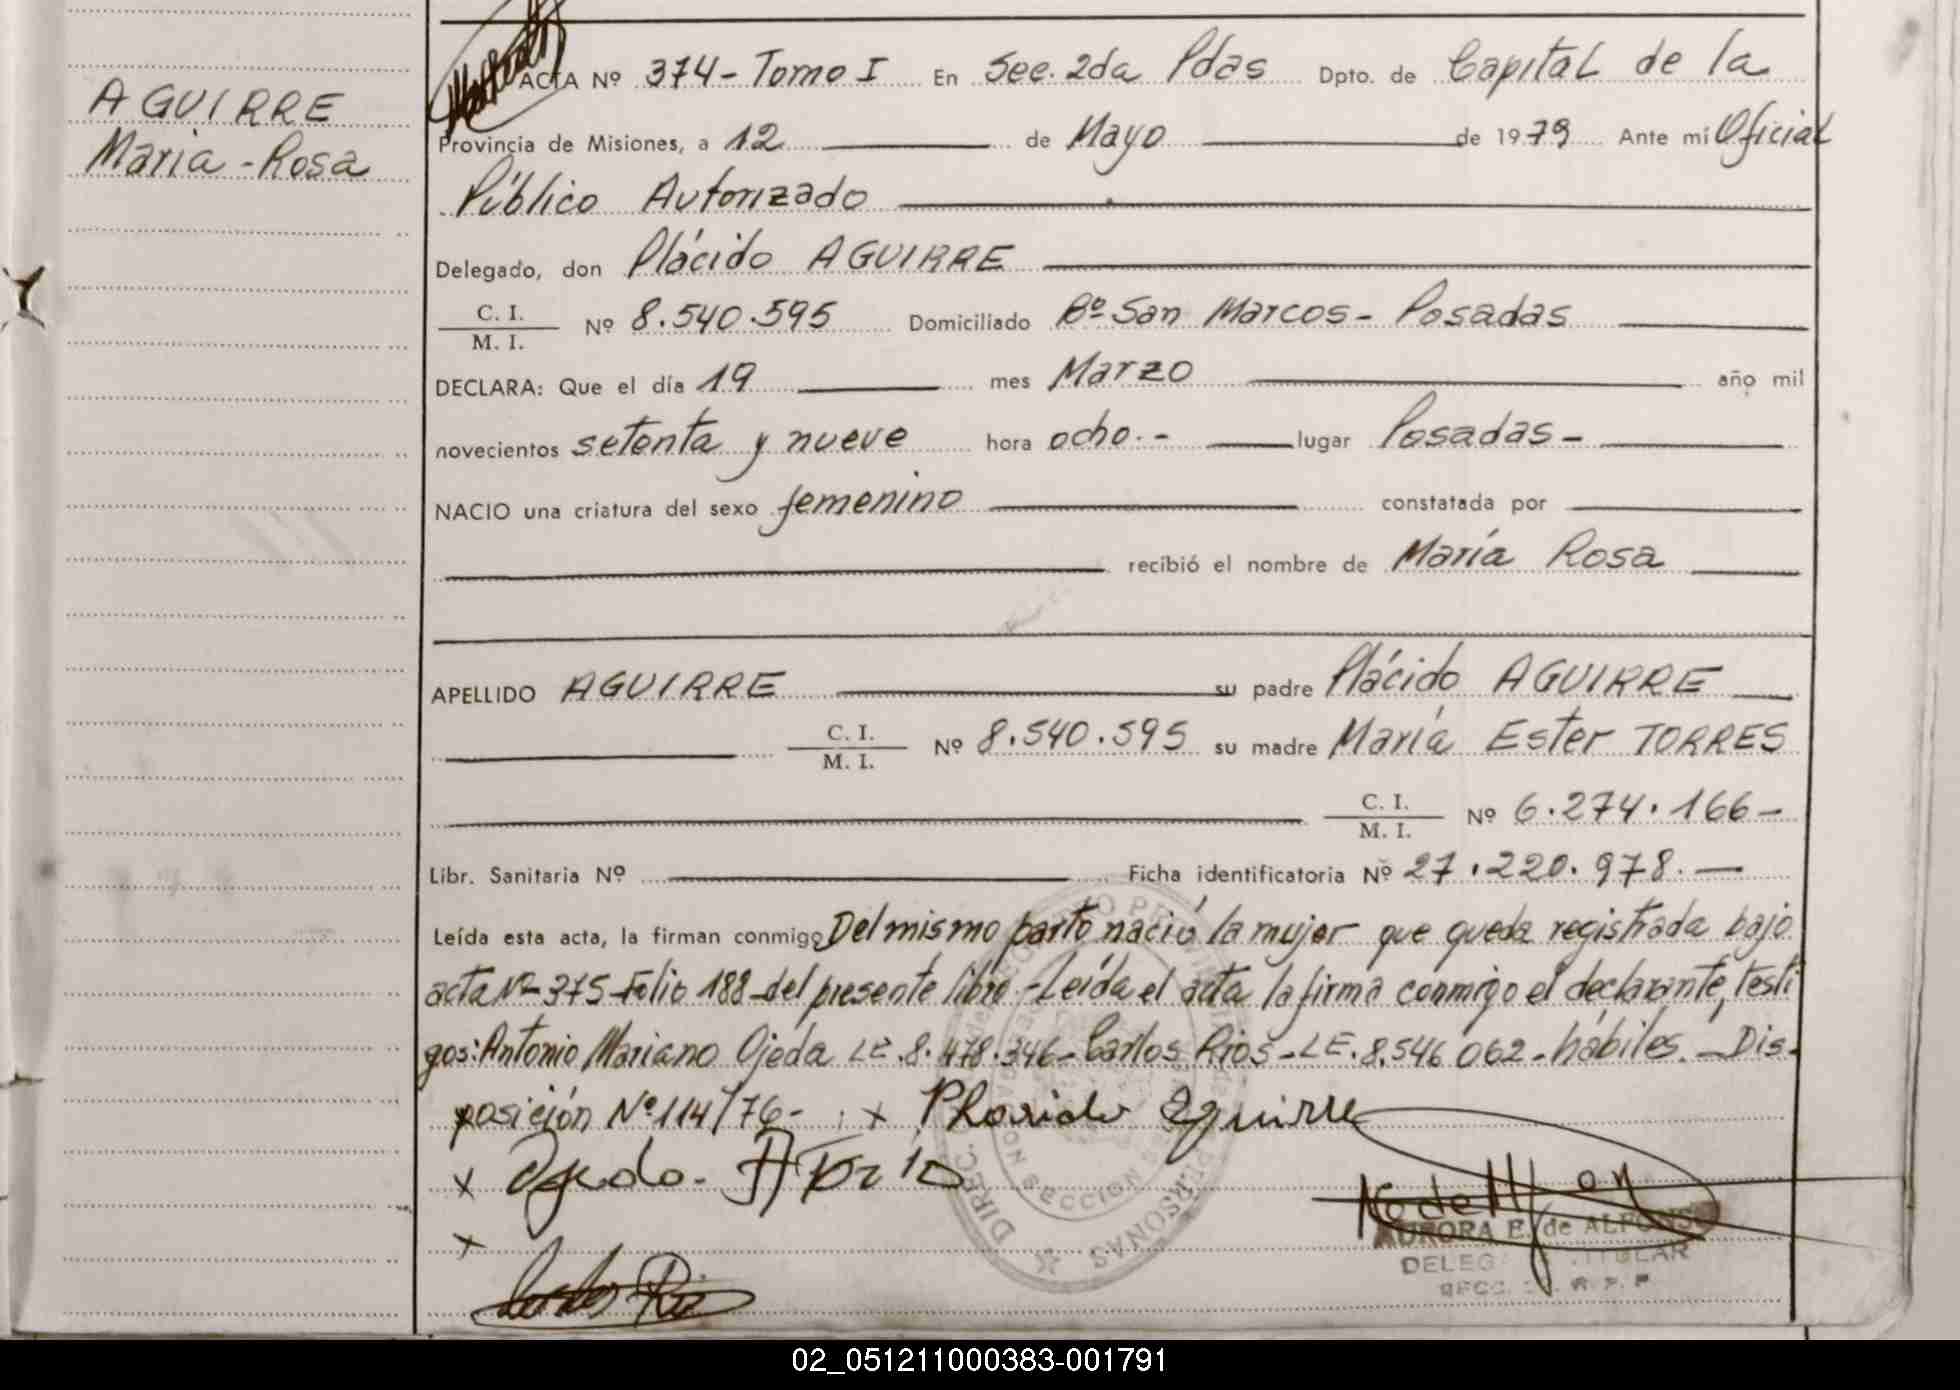 AGUIRRE
Maria - Rosa
ACTA Nº 374 - Tomo I En Sec. 2da Pdas Dpto. de Capital de la
Provincia de Misiones, a 12 de Mayo de 1979 Ante mi Oficial
Público Autorizado
Delegado, don Plácido AGUIRRE
C. I.
M. I. Nº 8.540.595 Domiciliado Bº San Marcos - Posadas
DECLARA: Que el día 19 mes Marzo año mil
novecientos setenta y nueve hora ocho.- lugar Posadas -
NACIO una criatura del sexo femenino constatada por
recibió el nombre de María Rosa
APELLIDO AGUIRRE su padre Plácido AGUIRRE
C. I.
M. I. Nº 8.540.595 su madre María Ester TORRES
C. I.
M. I. Nº 6.274.166 -
Libr. Sanitaria Nº Ficha identificatoria Nº 27.220.978. -
Leída esta acta, la firman conmigo Del mismo parto nació la mujer que queda registrada bajo
acta Nº 375 - Folio 188 - del presente libro - Leída el acta la firma conmigo el declarante, testi
gos: Antonio Mariano Ojeda LE. 8.478.346 - Carlos Rios - LE. 8.546 062 - hábiles. - Dis-
posición Nº 114/76 - x
x
x
AURORA E. de ALFONSO
DIREC.
SECCION
PERSONAS
02_051211000383-001791